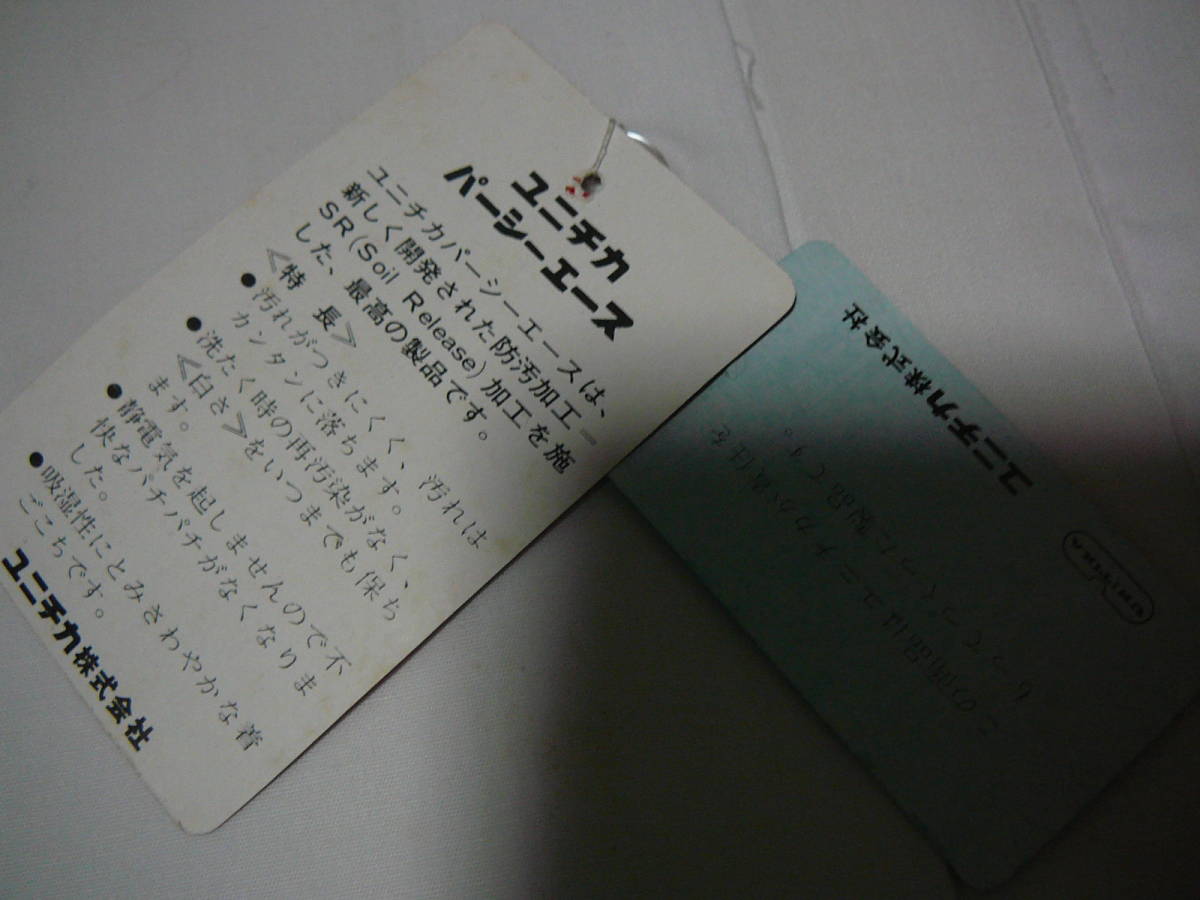 ユニチカ
パーシーエース
ユニチカパーシーエースは、
新しく開発された防汚加工＝
SR(Soil Release)加工を施
した、最高の製品です。
≪特 長≫
●汚れがつきにくく、汚れは
カンタンに落ちます。
●洗たく時の再汚染がなく、
≪白さ≫をいつまでも保ち
ます。
●静電気を起しませんので不
快なパチパチがなくなりま
した。
●吸湿性にとみさわやかな着
ごこちです。
ユニチカ株式会社
この商品はユニチカが責任を
もってつくった製品です。
UNITIKA
ユニチカ株式会社